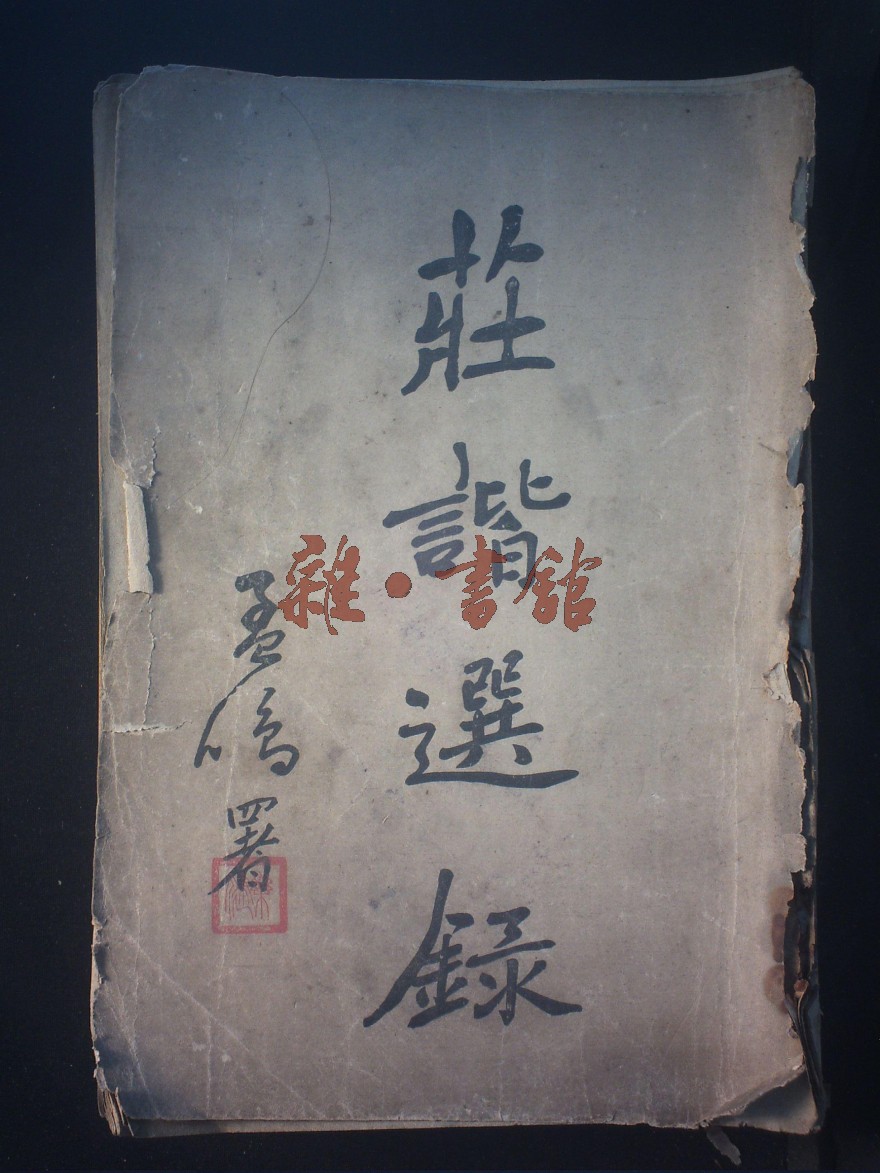 莊諧選錄
孟鳴署
雜·書館